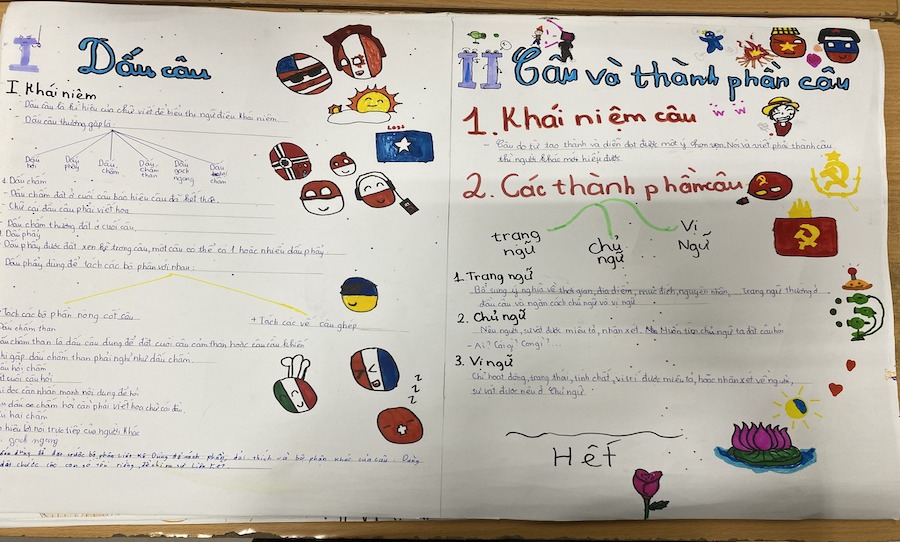 I Dấu câu
I Khái niệm
- Dấu câu là kí hiệu của chữ viết để biểu thị ngữ điệu khái niệm
- Dấu câu thường gặp là:
Dấu hỏi Dấu phẩy Dấu chấm Dấu chấm than Dấu gạch ngang Dấu chấm
Dấu chấm
- Dấu chấm đặt ở cuối câu báo hiệu câu đã kết thúc.
- Chữ cái đầu câu phải viết hoa
- Dấu chấm thường đặt ở cuối câu
Dấu phẩy
Dấu phẩy được đặt xen kẽ trong câu, một câu có thể có 1 hoặc nhiều dấu phẩy
Dấu phẩy dùng để tách các bộ phận với nhau:
+ Tách các bộ phận nòng cốt câu
+ Tách các vế câu ghép
Dấu chấm than
dấu chấm than là dấu câu dùng để đặt cuối câu cảm thán hoặc câu cầu khiến
khi gặp dấu chấm than phải nghỉ như dấu chấm
dấu hỏi chấm
đặt cuối câu hỏi
khi đọc cần nhấn mạnh nội dung để hỏi
sau dấu chấm hỏi cần phải viết hoa chữ cái đầu
dấu hai chấm
báo hiệu lời nói trực tiếp của người khác
gạch ngang
Lost
z
z
z
II Câu và thành phần câu
1. Khái niệm câu
- Câu do từ tạo thành và diễn đạt được một ý chọn vẹn. Nói và viết phải thành câu
thì người khác mới hiểu được
w w
2. Các thành phần câu
trạng ngữ chủ ngữ Vị Ngữ
1. Trạng ngữ
Bổ sung ý nghĩa về thời gian, địa điểm, mục đích, nguyên nhân, Trạng ngữ thường ở
đầu câu và ngăn cách chủ ngữ và vị ngữ
2. Chủ ngữ
Nêu người, sự vật được miêu tả, nhận xét. Muốn tìm chủ ngữ ta đặt câu hỏi
- Ai? Cái gì? Con gì?...
3. Vị ngữ
Chỉ hoạt động, trạng thái, tính chất, vị trí được miêu tả, hoặc nhận xét về người,
sự vật được nêu ở Chủ ngữ.
Hết